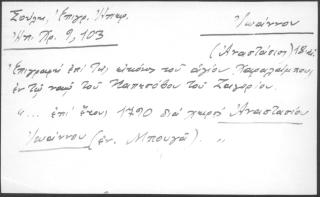 Σούλη, Ἐπιγρ. Ἠπειρ.
Ἠπ. Χρ. 9, 103
Ἰωάννου
(Ἀναστάσιος) 18 αἰ.
Ἐπιγραφή ἐπί τῆς εἰκόνος τοῦ ἁγίου Χαραλάμπους,
ἐν τῷ ναῷ τοῦ Καπεσόβου τοῦ Ζαγορίου.
"... ἐπί ἔτους 1790 διά χειρός Ἀναστασίου
Ἰωάννου (ἐν. Μπουγᾶ). "